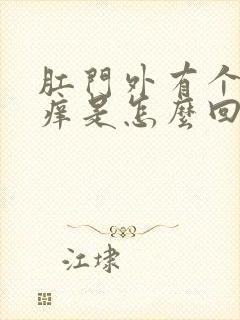 肛門外有个
痒是怎麼回
江埭